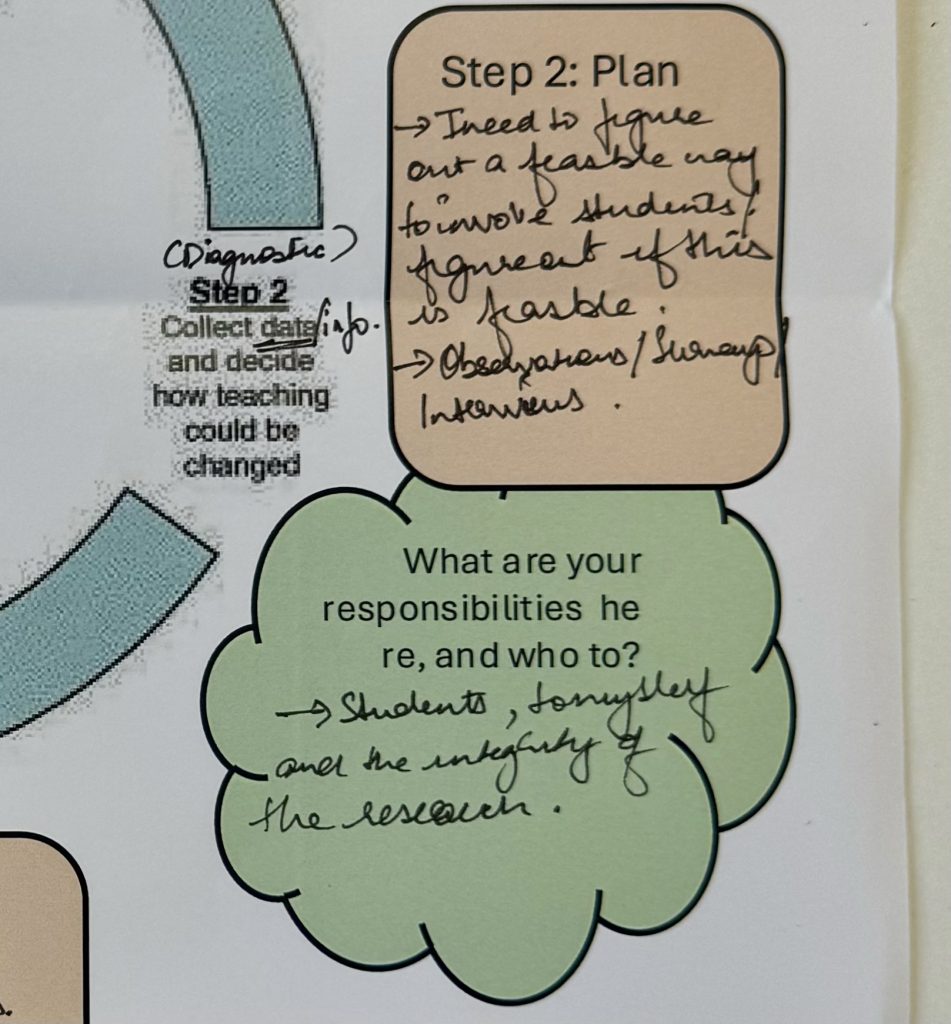 Step 2: Plan
→ I need to figure
out a feasible way
to involve students/
figure out if this
is feasible.
→ Observations/Surveys/
Interviews.
(Diagnostic)
Step 2
Collect data/info.
and decide
how teaching
could be
changed
What are your
responsibilities he
re, and who to?
→ Students, to myself
and the integrity of
the research.